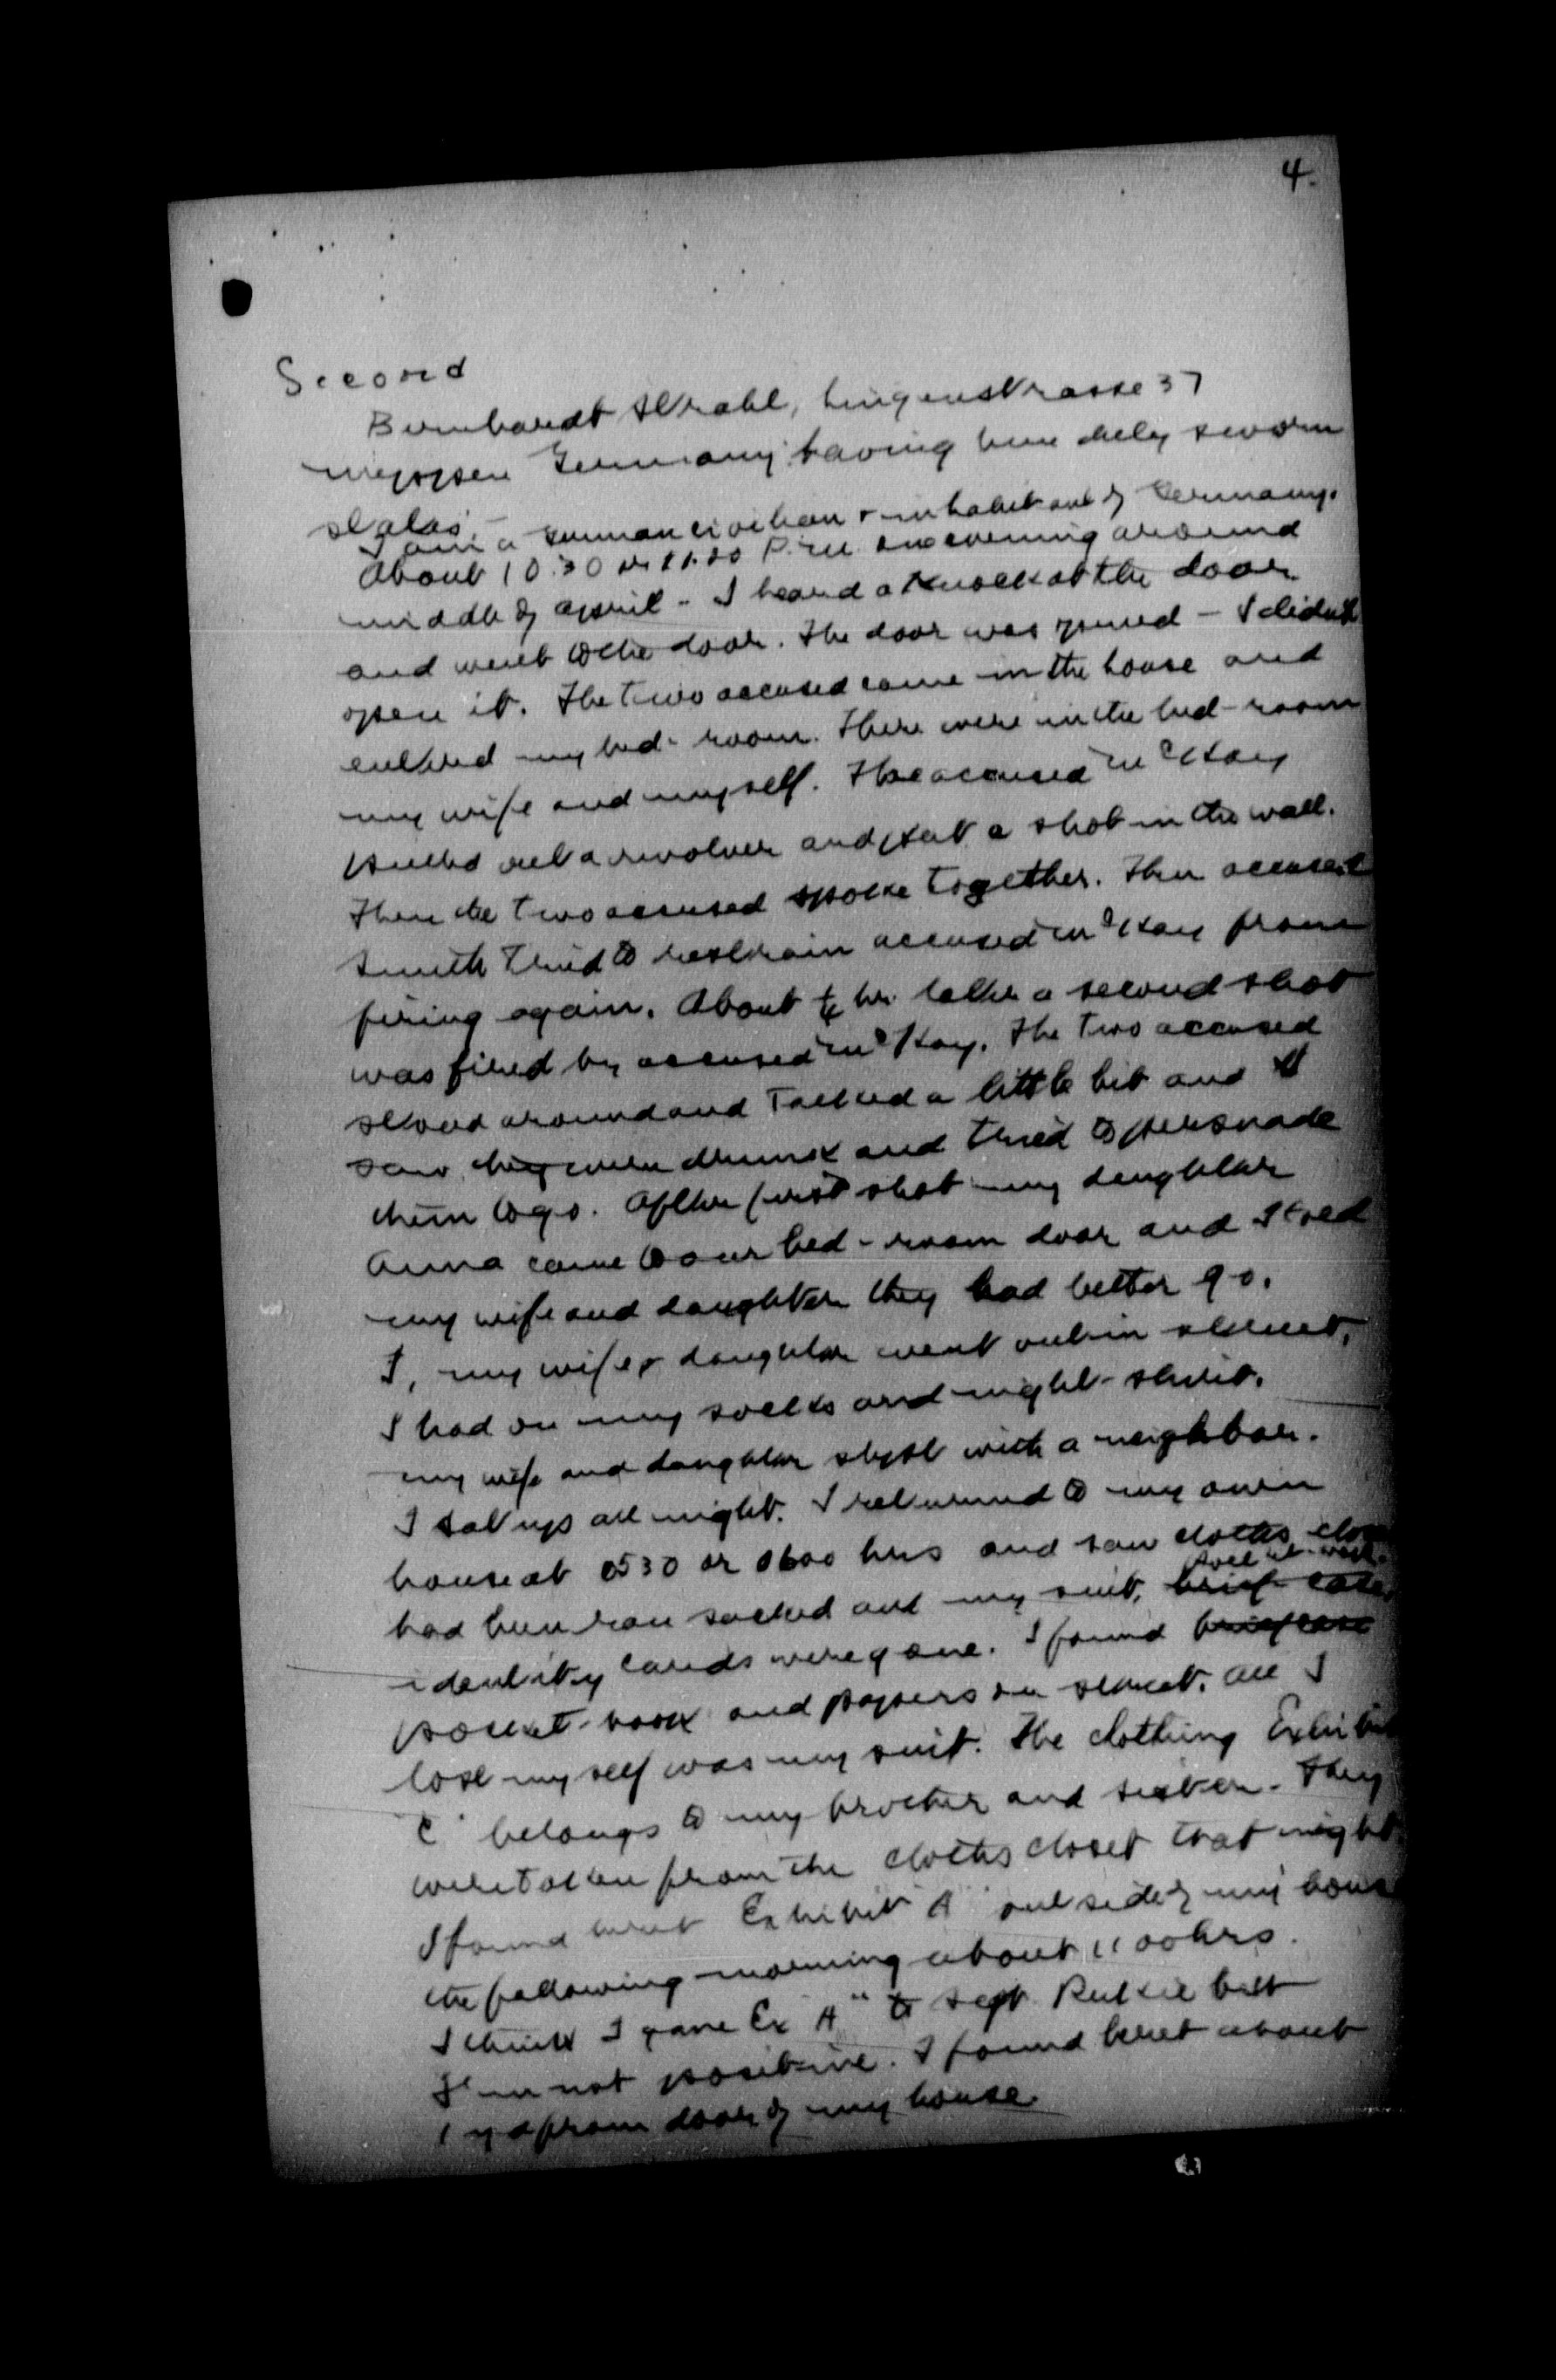 4.
Second
Bernhardt Strahl, Lingenstrasse 37
Meppen Germany having been duly sworn
states:-
I am a German civilian & inhabitant of Germany.
About 10:30 or 11:00 P.M. one evening around
middle of April - I heard a knock at the door
and went to the door. The door was opened - I didn't
open it. The two accused came in the house and
entered my bed-room. There were in the bed-room
my wife and myself. The accused McKay
pulled out a revolver and put a shot in the wall.
Then the two accused spoke together. Then accused
Smith tried to restrain accused McKay from
firing again. About ¼ hr. later a second shot
was fired by accused McKay. The two accused
stood around and talked a little bit and I
saw they were drunk and tried to persuade
them to go. After first shot my daughter
Anna came to our bed-room door and I told
my wife and daughter they had better go.
I, my wife & daughter went out in street.
I had on my socks and night-shirt.
My wife and daughter slept with a neighbour.
I sat up all night. I returned to my own
house at 0530 or 0600 hrs and saw clothes
had been ransacked and my suit, brief case
identity cards were gone. I found brief case
pocket-book and papers on street. All I
lost myself was my suit. The clothing Exhibit
"C" belongs to my brother and sister. They
were taken from the clothes closet that night
I found beret Exhibit "A" outside of my house
the following morning about 1100 hrs.
I think I gave Ex "A" to Sgt. but
I'm not positive. I found beret about
1 yd from door of my house